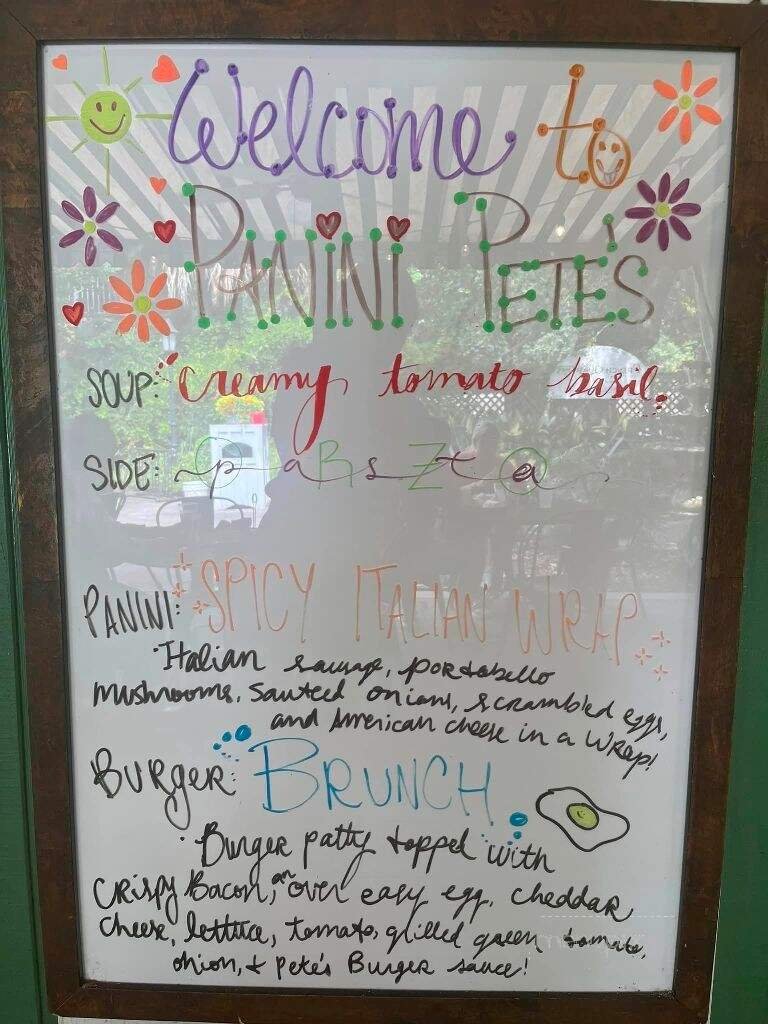 Welcome to
PANINI PETE'S
SOUP: Creamy tomato basil
SIDE: ORZO pasta
PANINI: SPICY ITALIAN WRAP
· Italian sausage, portobello
mushrooms, sauteed onions, scrambled eggs,
and American cheese in a wrap!
BURGER: BRUNCH
· Burger patty topped with
crispy Bacon, an over easy egg, cheddar
cheese, lettuce, tomato, grilled green tomato,
onion, + Pete's Burger sauce!